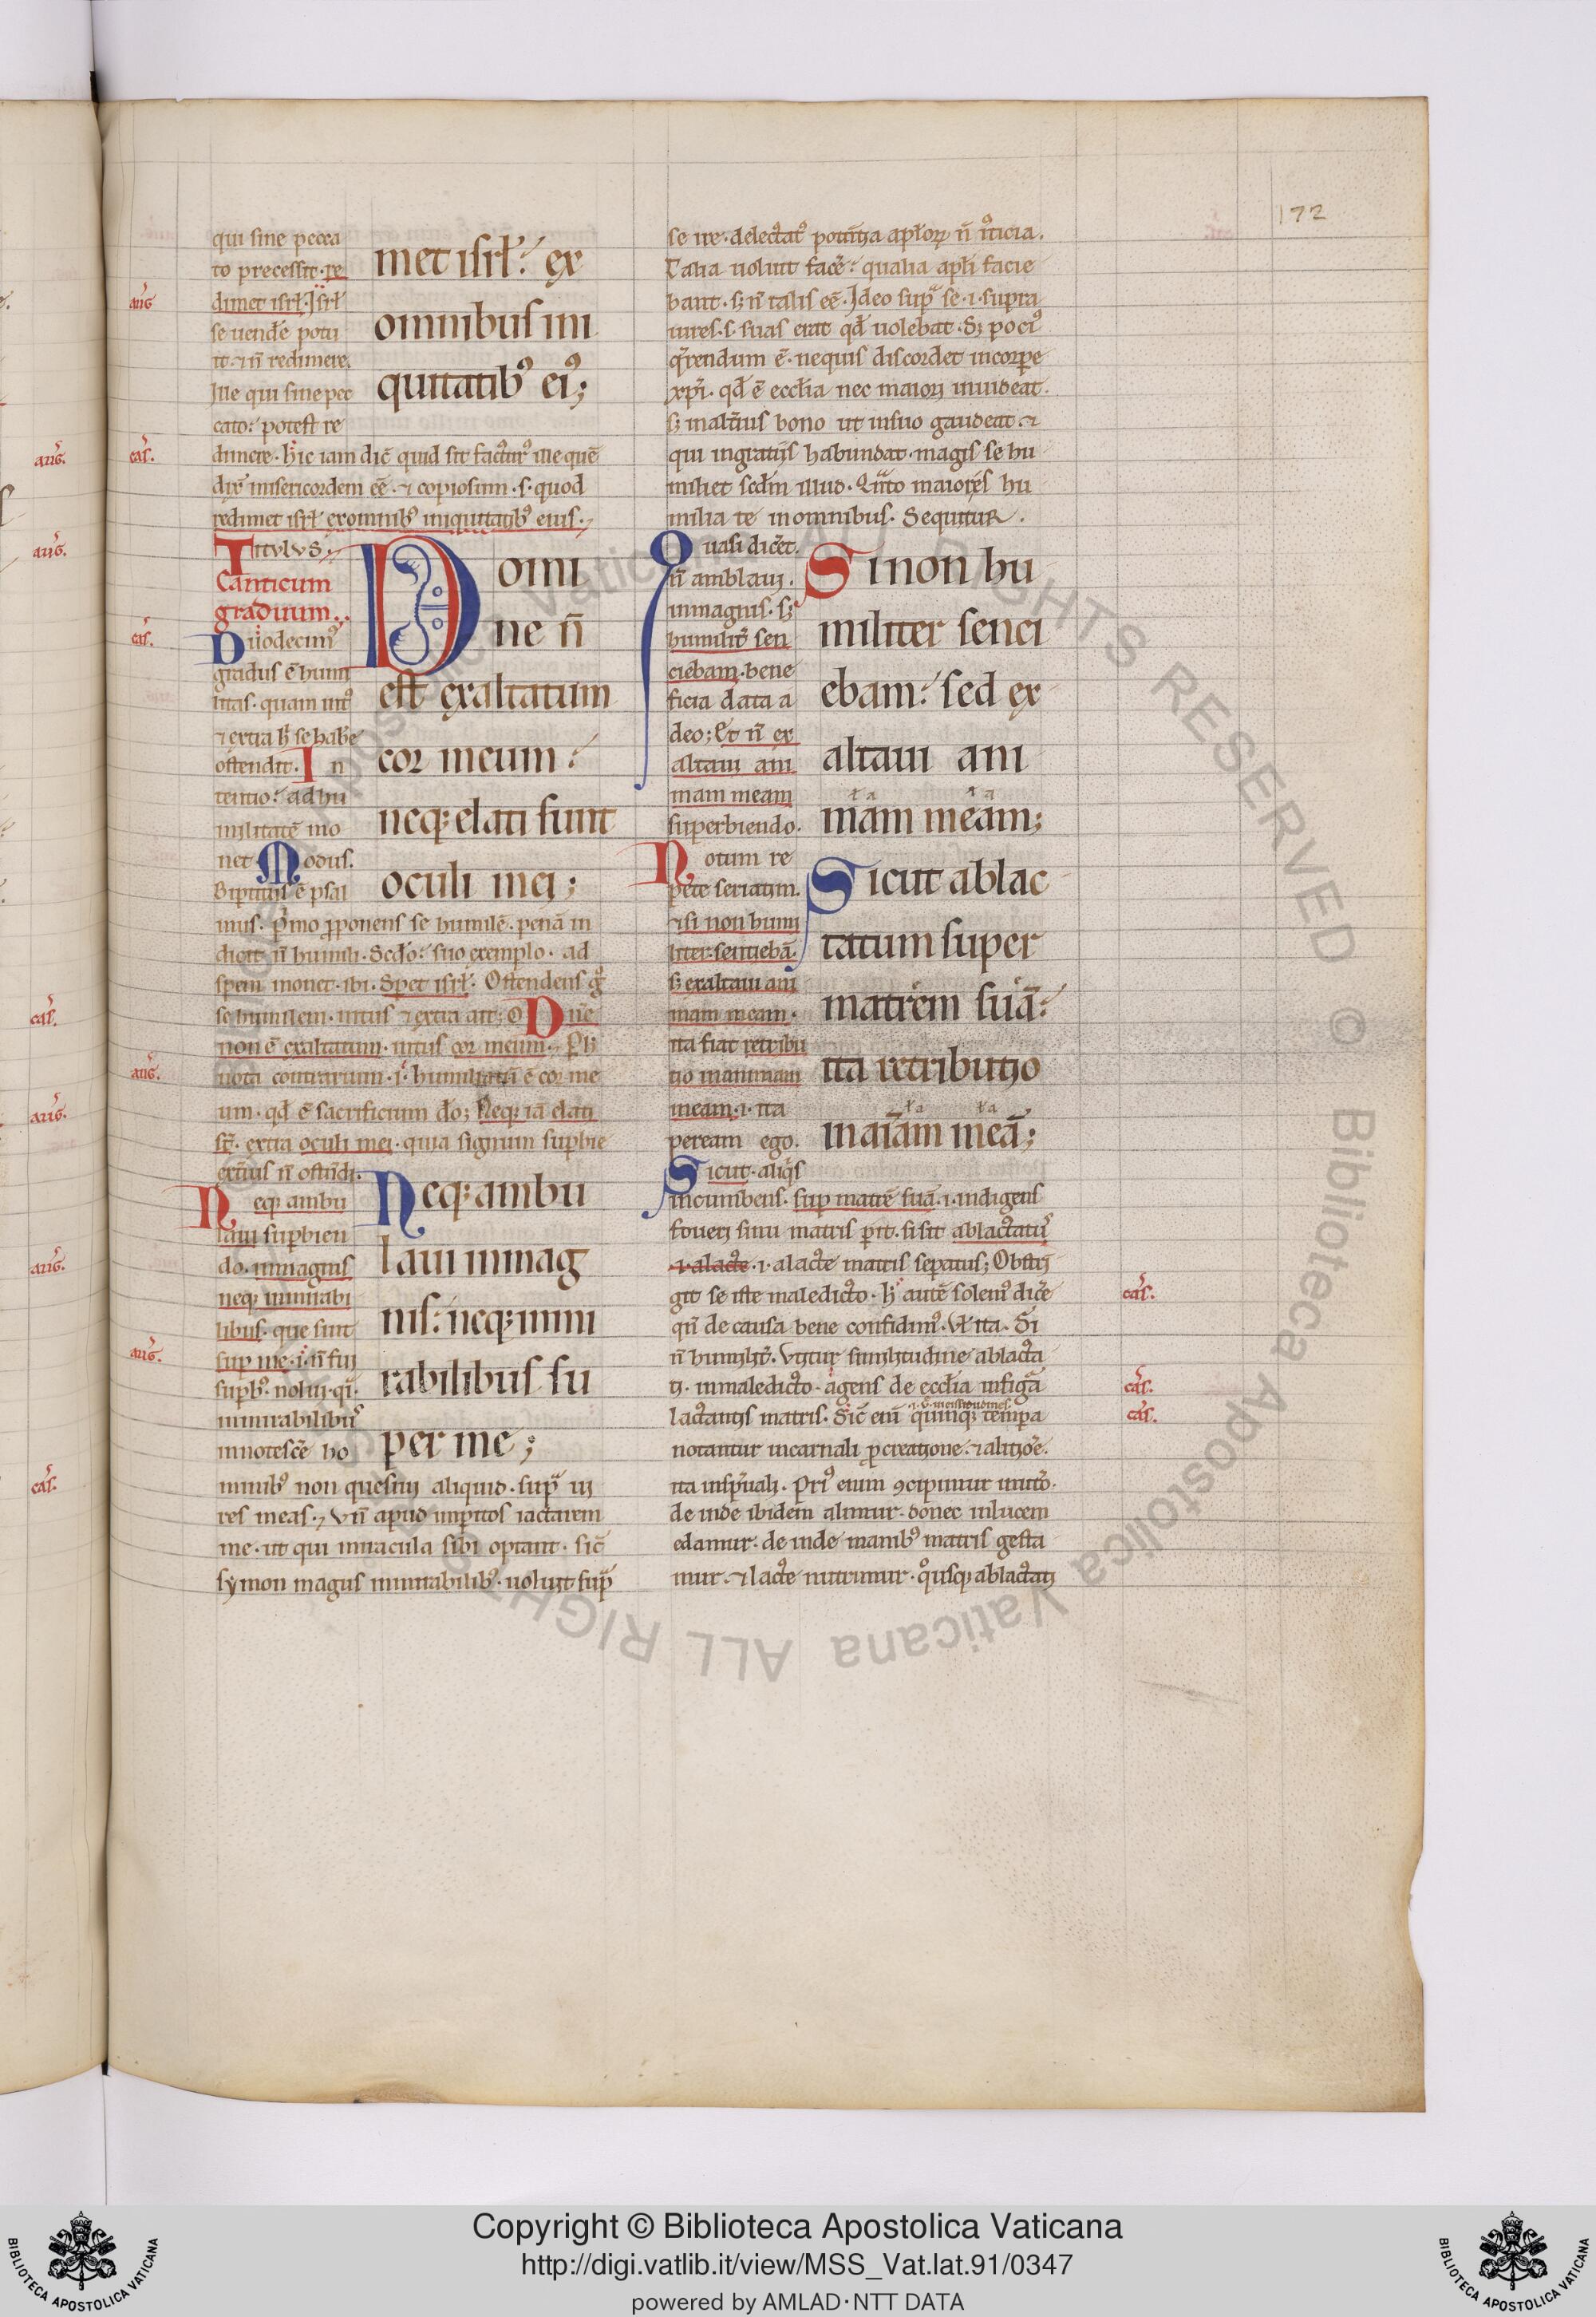 172
qui sine pecca
to precessit · re
dimet isrl̄ · Isrl̄
se uende᷒ potu
it · ⁊ n̄ redimere
Ille qui sine pec
cato: potest re
met isrl̄: ex
omnibus ini
quitatib᷒ ei᷒;
dimere · hic iam dic̄ quid sit factur᷒ ille quē
dix̄ misericordem eē · ⁊ copiosum · s · quod
redimet isrl̄ ex omnib᷒ iniquitatib᷒ eius ·
Titulus ·
Canticum
graduum ·
Duodecim᷒
gradus ē humi
litas · quam int᷒
⁊ extra h̄ se habe
ostendit · In
tentio: ad hu
militatē mo
net · Modus ·
Bipartit᷒ ē psal
Domi
ne n̄
est exaltatum
cor meum:
neq; elati sunt
oculi mei;
mus · p̄mo p̄ponens se humilē · penā in
dicit n̄ humili · Scd̄o: suo exemplo · ad
spem monet · ibi · Speret isrl̄ · Ostendens g᷒
se humilem · intus ⁊ extra ait: O Dn̄e
non ē exaltatum · intus cor meum ·
uota contrarium · i · humiliatū ē cor me
um · qd̄ ē sacrificium dō; Neq; iā elati
st̄ · extra oculi mei · quia signum supbie
exteius n̄ ostēdi ·
Neq; ambu
laui supbien
do · inmagnis
neq; inmirabi
libus · que sunt
sup me · i · n̄ fui
supb᷒ · nolui · qi ·
inmirabilibus
innotesce᷒ ho
Neq; ambu
laui inmag
nis: neq; inmi
rabilibus su
per me;
minib᷒ non quesiui aliquid · supra ui
res meas · ⁊ un̄ apud imperitos iactarem
me · ut qui miracula sibi optant · sic̄
symon magus inmirabilib᷒ · uoluit supra
se ire · delectat᷒ potentia apl̄oꝝ n̄ iusticia ·
Talia uoluit face᷒: qualia apl̄i facie
bant · s; n̄ talis eē · Ideo supra se · i · supra
uires · s · suas erat qd̄ uolebat · S; poci᷒
q̄rendum ē · nequis discordet incorpe
xp̄i · qd̄ ē eccl̄ia nec maiori inuideat ·
s; malit̄ius bono ut insuo gaudeat · ⁊
qui ingratiis habundat · magis se hu
miliet scd̄m illud · Quanto maior es hu
milia te inomnibus · Sequitur ·
Quasi dicet ·
n̄ amblaui ·
inmagnis · s;
humilit̄ sen
ciebam · bene
ficia data a
deo; Et n̄ ex
altaui ani
mam meam
superbiendo ·
Si non hu
militer senci
ebam: sed ex
altaui ani
mam meam;
Notum re
pete seriatim ·
⁊ si non humi
liter · sentiebā ·
s; exaltaui ani
mam meam ·
ita fiat retribu
tio inanimam
meam · i · ita
peream ego ·
Sicut ablac
tatum super
matrem suā:
ita retributio
inaīam meā;
Sicut · aliq̄s
incumbens · sup matrē suā · i · indigens
foueri sinu matris perit · si sit ablactat᷒
i · a lacte · i · a lacte matris separatus; Obstri
git se iste maledicto · h̄ autē solem᷒ dice᷒
qn̄ de causa bene confidim᷒ · Vl̄ ita · Si
n̄ humiliter · Utitur similitudine ablacta
ti · inmaledicto · agens de eccl̄ia infigura
lactantis matris · Sic̄ enī quinq; tempa
notantur incarnali p̄creatione · ⁊ alitione ·
ita inspūali · Pri᷒ enim ꝯcipimur inutero ·
de inde ibidem alimur · donec inlucem
edamur: de inde manib᷒ matris gesta
mur · ⁊ lacte nutrimur · quousq; ablactati
aug
cas.
cas.
aug.
aug.
cas.
cas.
cas.
aug.
aug.
cas.
aug.
aug.
cas.
Copyright © Biblioteca Apostolica Vaticana
http://digi.vatlib.it/view/MSS_Vat.lat.91/0347
powered by AMLAD·NTT DATA
BIBLIOTECA APOSTOLICA VATICANA
BIBLIOTECA APOSTOLICA VATICANA
© Biblioteca Apostolica Vaticana ALL RIGHTS RESERVED